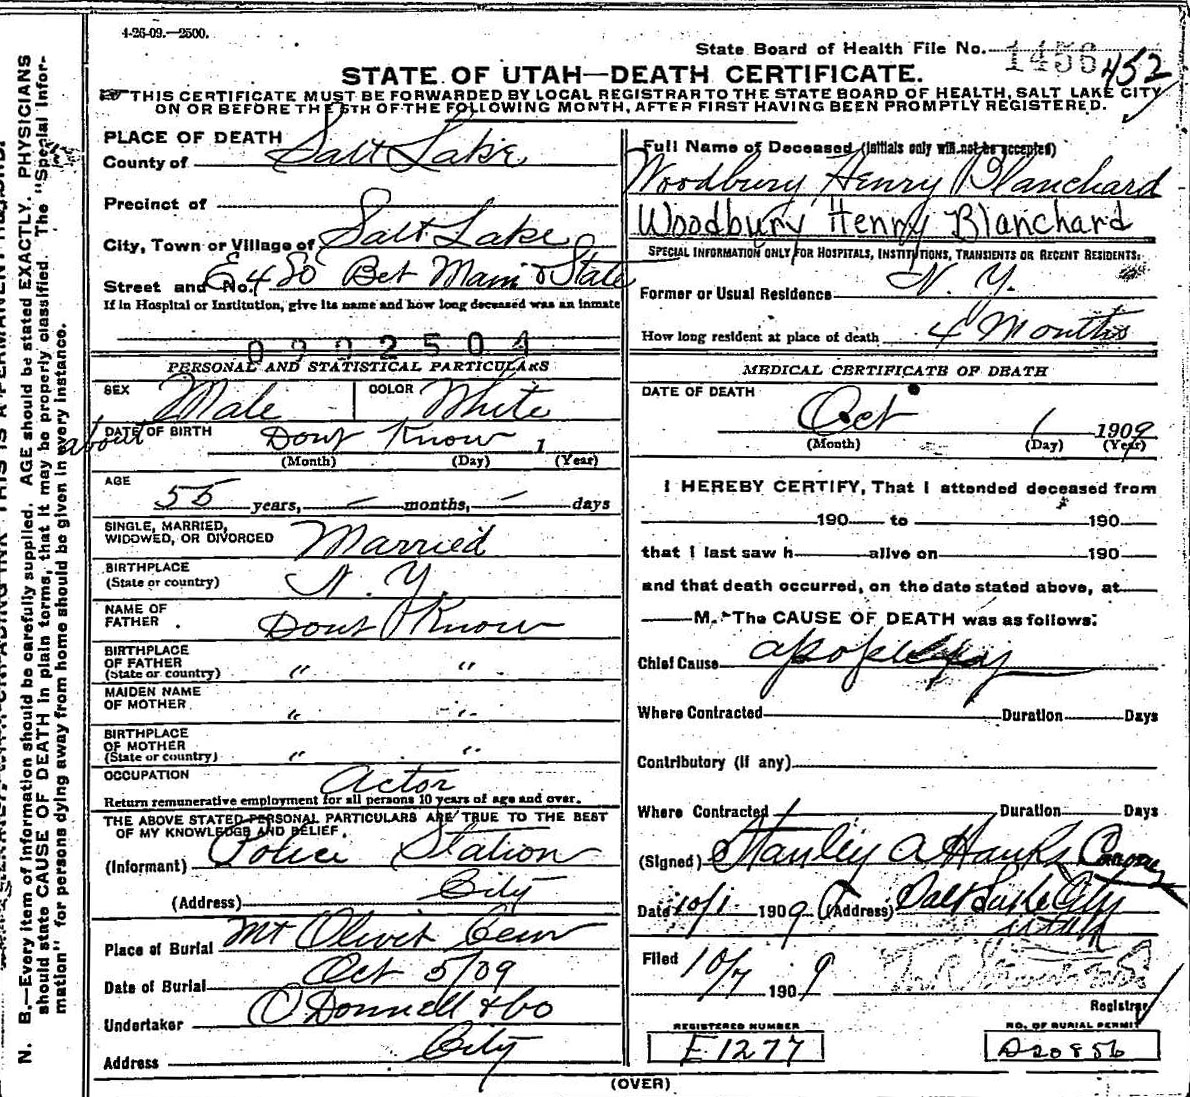 4-26-09.—2500.
State Board of Health File No. 1456 452
STATE OF UTAH—DEATH CERTIFICATE.
THIS CERTIFICATE MUST BE FORWARDED BY LOCAL REGISTRAR TO THE STATE BOARD OF HEALTH, SALT LAKE CITY
ON OR BEFORE THE 5TH OF THE FOLLOWING MONTH, AFTER FIRST HAVING BEEN PROMPTLY REGISTERED.
PLACE OF DEATH
County of Salt Lake
Precinct of
City, Town or Village of Salt Lake
Street and No. E 4 So Bet Main & State
If in Hospital or Institution, give its name and how long deceased was an inmate
0902504
PERSONAL AND STATISTICAL PARTICULARS
SEX Male COLOR White
DATE OF BIRTH Dont Know 1
(Month) (Day) (Year)
about
AGE
55 years, — months, — days
SINGLE, MARRIED,
WIDOWED, OR DIVORCED Married
BIRTHPLACE
(State or country) N. Y.
NAME OF
FATHER Dont Know
BIRTHPLACE
OF FATHER
(State or country) " "
MAIDEN NAME
OF MOTHER " "
BIRTHPLACE
OF MOTHER
(State or country) " "
OCCUPATION Actor
Return remunerative employment for all persons 10 years of age and over.
THE ABOVE STATED PERSONAL PARTICULARS ARE TRUE TO THE BEST
OF MY KNOWLEDGE AND BELIEF.
(Informant) Police Station
(Address) City
Place of Burial Mt Olivet Cem
Date of Burial Oct 5/09
Undertaker O'Donnell & Co
Address City
Full Name of Deceased (initials only will not be accepted)
Woodbury Henry Blanchard
Woodbury Henry Blanchard
SPECIAL INFORMATION ONLY FOR HOSPITALS, INSTITUTIONS, TRANSIENTS OR RECENT RESIDENTS.
Former or Usual Residence N. Y.
How long resident at place of death 4 Months
MEDICAL CERTIFICATE OF DEATH
DATE OF DEATH
Oct 1 1909
(Month) (Day) (Year)
I HEREBY CERTIFY, That I attended deceased from
190 to 190
that I last saw h alive on 190
and that death occurred, on the date stated above, at
M. The CAUSE OF DEATH was as follows:
Chief Cause apoplexy
Where Contracted Duration Days
Contributory (if any)
Where Contracted Duration Days
(Signed) Stanley A Hanks
Date 10/1 1909 (Address) Salt Lake City
Utah
Filed 10/7 1909
Registrar
REGISTERED NUMBER
E1277
NO. OF BURIAL PERMIT
D20856
(OVER)
N. B.—Every item of information should be carefully supplied. AGE should be stated EXACTLY. PHYSICIANS
should state CAUSE OF DEATH in plain terms, that it may be properly classified. The "Special Infor-
mation" for persons dying away from home should be given in every instance.